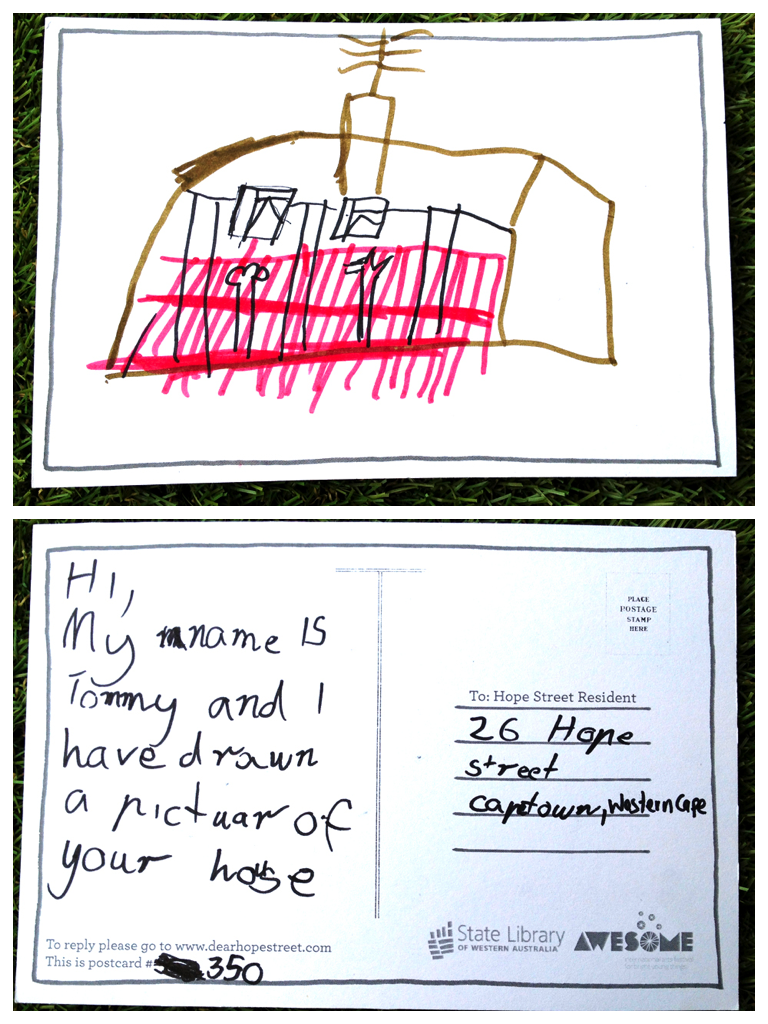 Hi,
My name is
Tommy and I
have drawn
a pictuar of
your house
PLACE
POSTAGE
STAMP
HERE
To: Hope Street Resident
26 Hope
street
capetown, Western Cape
To reply please go to www.dearhopestreet.com
This is postcard # 350
State Library
OF WESTERN AUSTRALIA
AWESOME